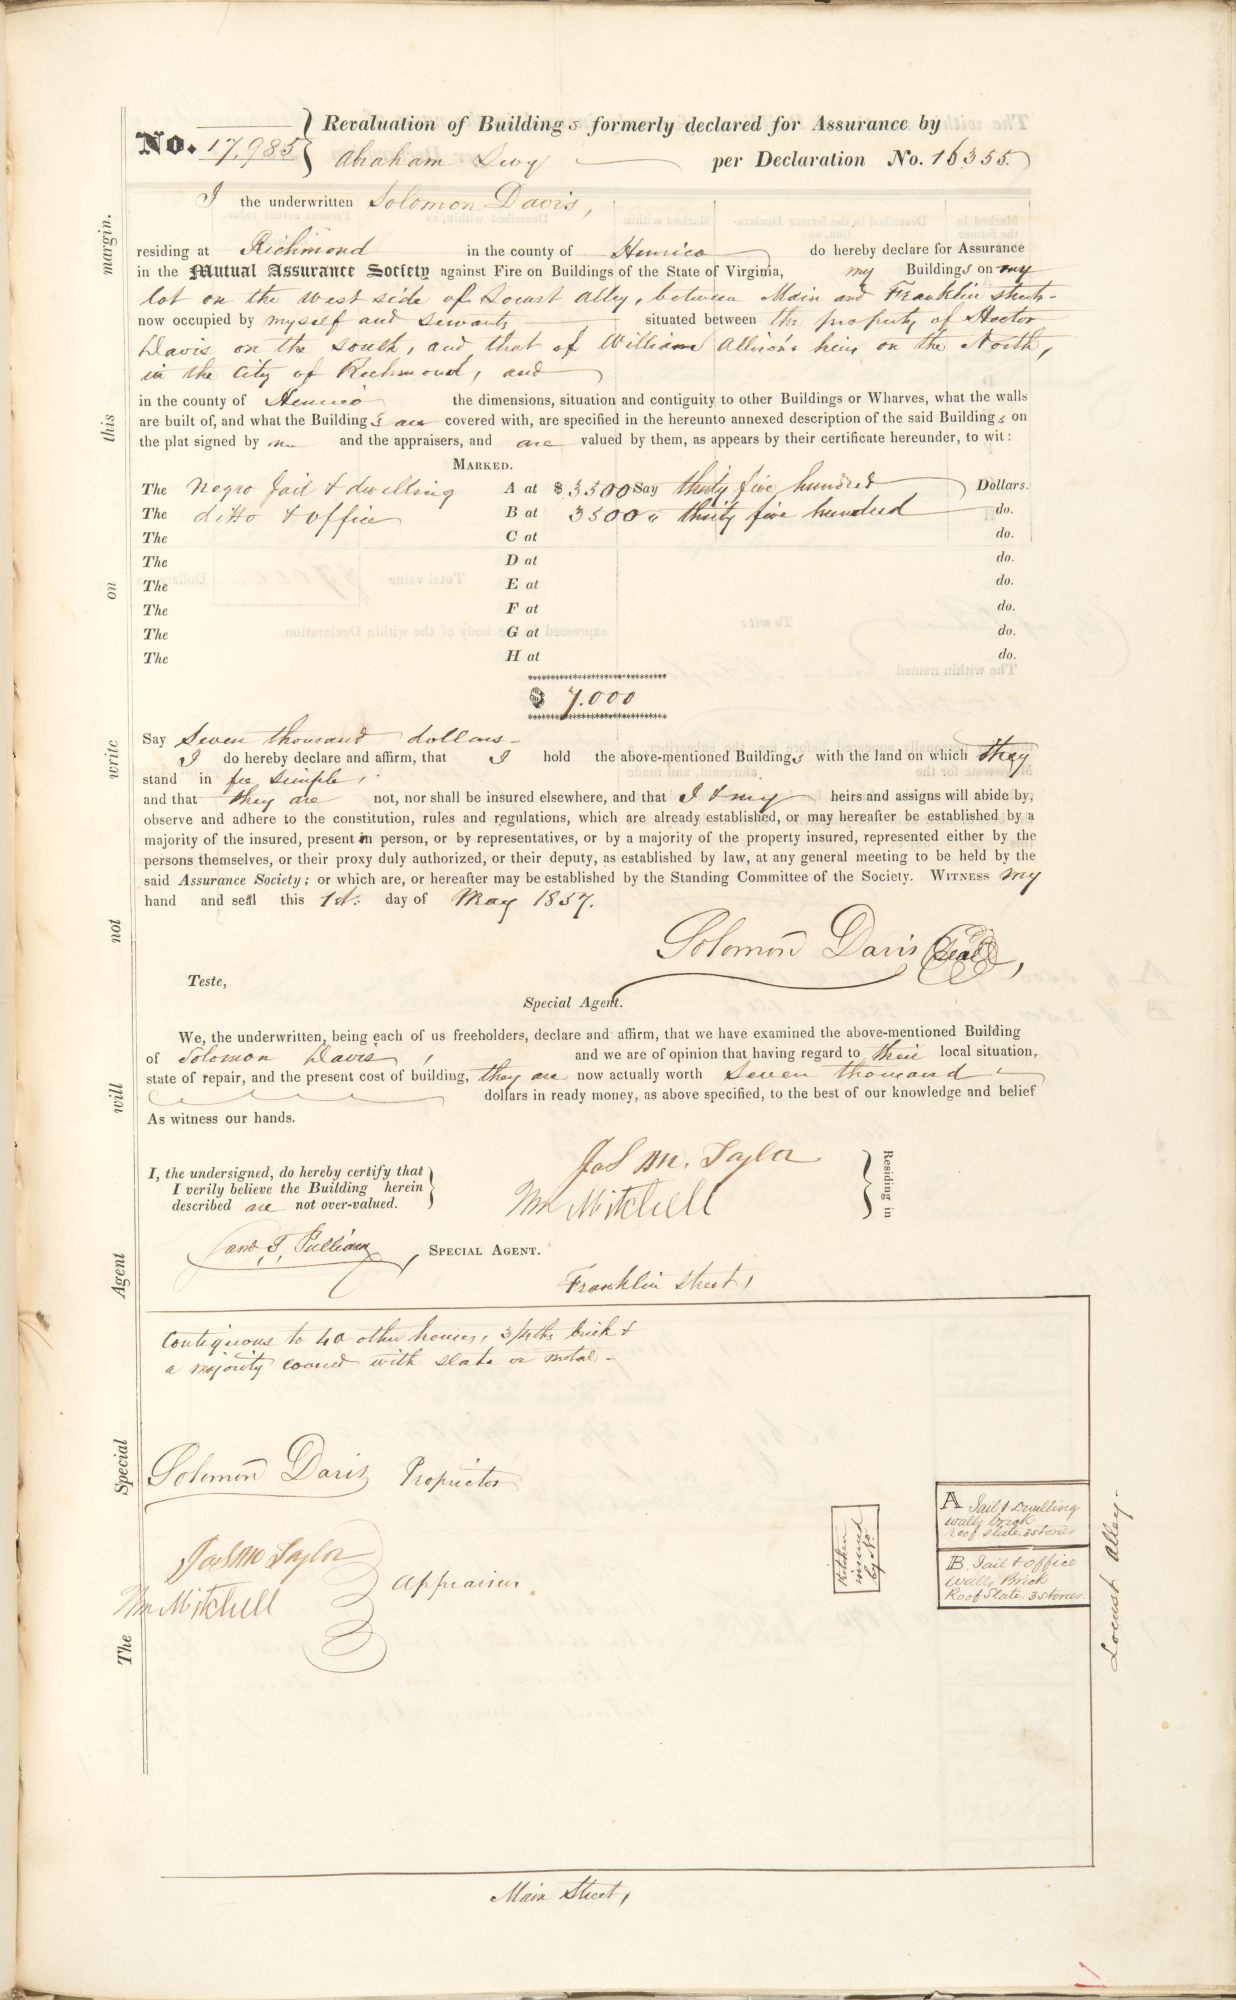 No. 17,985 } Revaluation of Buildings formerly declared for Assurance by
Abraham Levy per Declaration No. 16355.
I the underwritten Solomon Davis,
residing at Richmond in the county of Henrico do hereby declare for Assurance
in the Mutual Assurance Society against Fire on Buildings of the State of Virginia, my Buildings on my
lot on the west side of Locust Alley, between Main and Franklin streets
now occupied by myself and servants situated between the property of Hector
Davis on the south, and that of William Allison's heirs on the North,
in the City of Richmond, and
in the county of Henrico the dimensions, situation and contiguity to other Buildings or Wharves, what the walls
are built of, and what the Building's are covered with, are specified in the hereunto annexed description of the said Buildings on
the plat signed by me and the appraisers, and are valued by them, as appears by their certificate hereunder, to wit:
MARKED.
The Negro Jail & dwelling A at $ 3500 Say thirty five hundred Dollars.
The ditto & office B at 3500 " thirty five hundred do.
The C at do.
The D at do.
The E at do.
The F at do.
The G at do.
The H at do.
$ 7.000
Say Seven thousand dollars
I do hereby declare and affirm, that I hold the above-mentioned Buildings with the land on which they
stand in fee simple,
and that they are not, nor shall be insured elsewhere, and that I & my heirs and assigns will abide by,
observe and adhere to the constitution, rules and regulations, which are already established, or may hereafter be established by a
majority of the insured, present in person, or by representatives, or by a majority of the property insured, represented either by the
persons themselves, or their proxy duly authorized, or their deputy, as established by law, at any general meeting to be held by the
said Assurance Society; or which are, or hereafter may be established by the Standing Committee of the Society. WITNESS my
hand and seal this 1st. day of May 1857.
Solomon Davis Seal
Teste,
Special Agent.
We, the underwritten, being each of us freeholders, declare and affirm, that we have examined the above-mentioned Building
of Solomon Davis, and we are of opinion that having regard to their local situation,
state of repair, and the present cost of building, they are now actually worth Seven thousand
dollars in ready money, as above specified, to the best of our knowledge and belief
As witness our hands.
Jas M. Taylor
Wm Mitchell
} Residing in
I, the undersigned, do hereby certify that
I verily believe the Building herein
described are not over-valued.
Saml T. Pulliam, SPECIAL AGENT.
Franklin street,
Contiguous to 40 other houses, 3/4ths brick &
a majority covered with slate or metal
Solomon Davis Proprietor
Jas M Taylor
Wm Mitchell
Appraisers.
Kitchen
insured
by No.
A Jail & Dwelling
walls brick
roof slate. 3 stories
B. Jail & office
walls Brick
Roof Slate. 3 stories.
Locust Alley.
Main Street,
The Special Agent will not write on this margin.